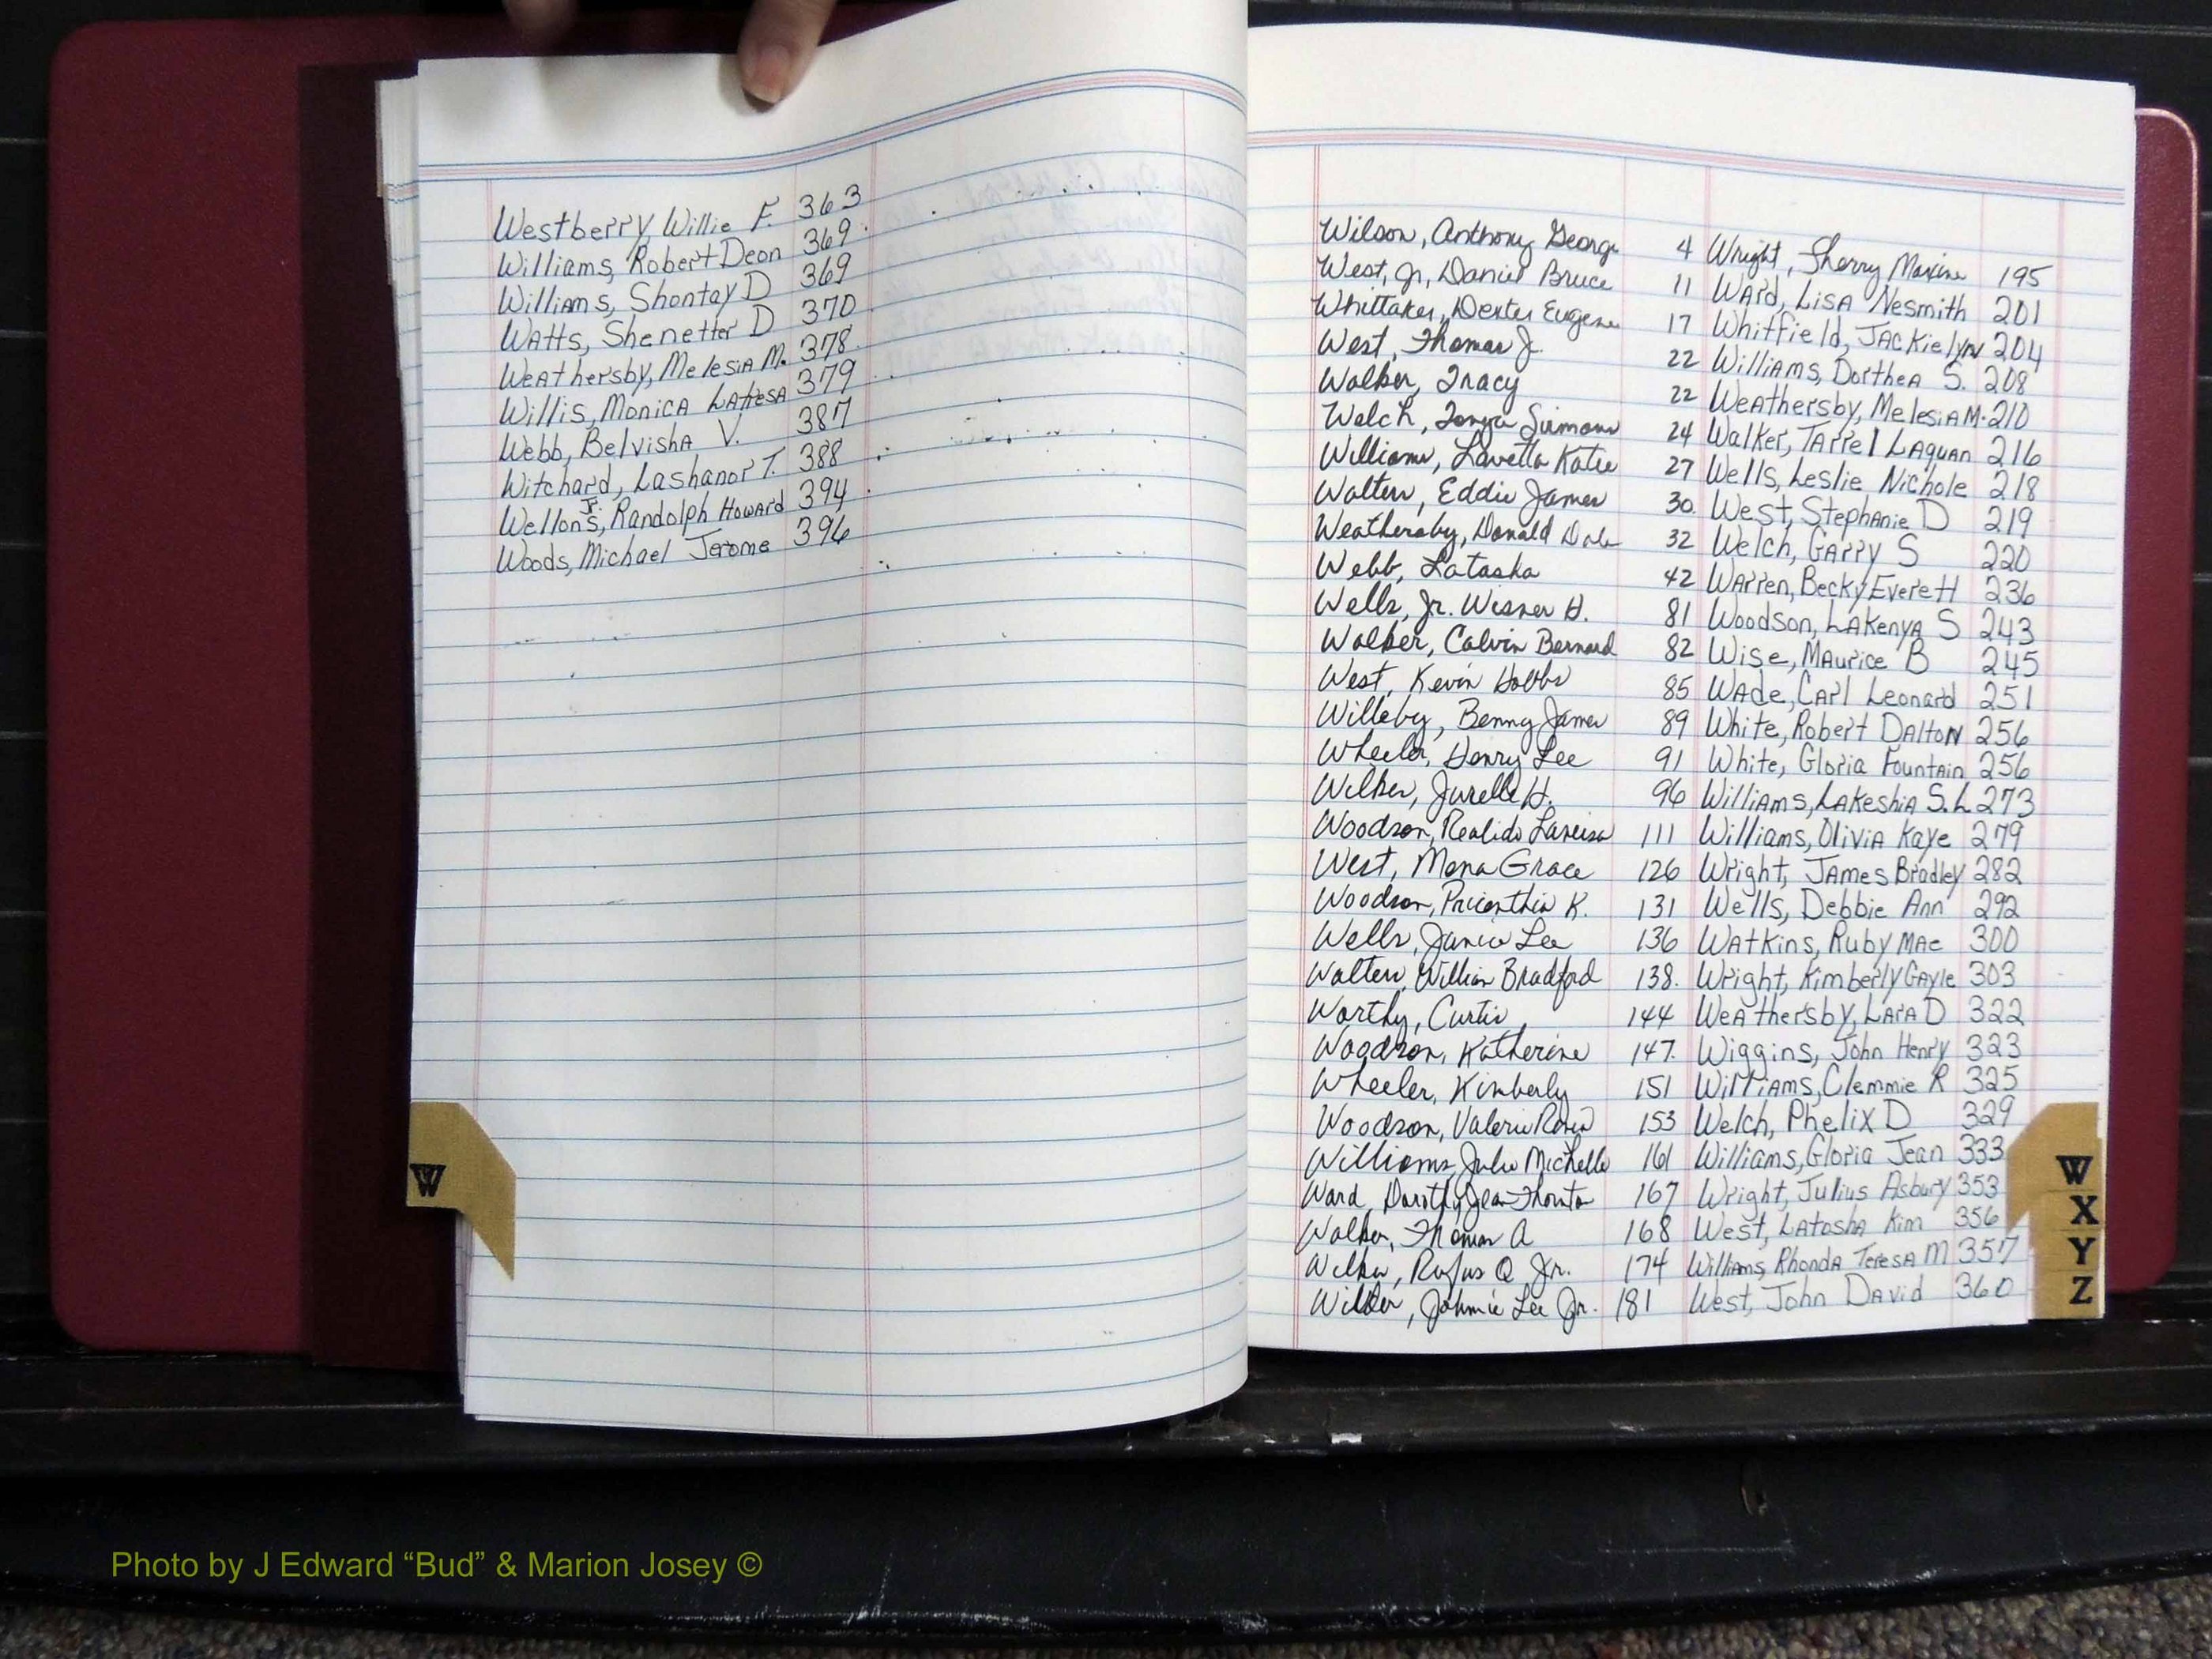 Westberry, Willie F. 363
Williams, Robert Deon 369
Williams, Shontay D 369
Watts, Shenetter D 370
Weathersby, Melesia M. 378
Willis, Monica Latresa 379
Webb, Belvisha V. 387
Witchard, Lashanor T. 388
Wellons, Jr. Randolph Howard 394
Woods, Michael Jerome 396
W
Wilson, Anthony George 4
West, Jr, Daniel Bruce 11
Whittaker, Dexter Eugene 17
West, Thomas J. 22
Walker, Tracy 22
Welch, Tonya Simmons 24
Williams, Lavetta Katie 27
Walters, Eddie James 30
Weathersby, Donald Dale 32
Webb, Lataska 42
Wells, Jr. Wisner H. 81
Walker, Calvin Bernard 82
West, Kevin Hobbs 85
Willeby, Benny James 89
Wheeler, Henry Lee 91
Wilkes, Jurelle H. 96
Woodson, 111
West, Mona Grace 126
Woodson, Pricenthia K. 131
Wells, Janice Lee 136
Walters, William Bradford 138.
Worthy, Curtis 144
Woodson, Katherine 147.
Wheeler, Kimberly 151
Woodson, Valerie 153
Williams, Julie Michelle 161
Ward, Dorothy Jean 167
Walker, Thomas A 168
Wilkes, Rufus Q Jr. 174
Wilder, Johnnie Lee Jr. 181
Wright, Sherry Maxine 195
Ward, Lisa Nesmith 201
Whitfield, Jackielyn 204
Williams, Dorthea S. 208
Weathersby, Melesia M. 210
Walker, Tarrel Laquan 216
Wells, Leslie Nichole 218
West, Stephanie D 219
Welch, Garry S 220
Warren, Becky Everett 236
Woodson, Lakenya S 243
Wise, Maurice B 245
Wade, Carl Leonard 251
White, Robert Dalton 256
White, Gloria Fountain 256
Williams, Lakeshia S. L 273
Williams, Olivia Kaye 279
Wright, James Bradley 282
Wells, Debbie Ann 292
Watkins, Ruby Mae 300
Wright, Kimberly Gayle 303
Weathersby, Lara D 322
Wiggins, John Henry 323
Williams, Clemmie R 325
Welch, Phelix D 329
Williams, Gloria Jean 333
Wright, Julius Asbury 353
West, Latosha Kim 356
Williams, Rhonda Teresa M 357
West, John David 360
W
X
Y
Z
Photo by J Edward “Bud” & Marion Josey ©